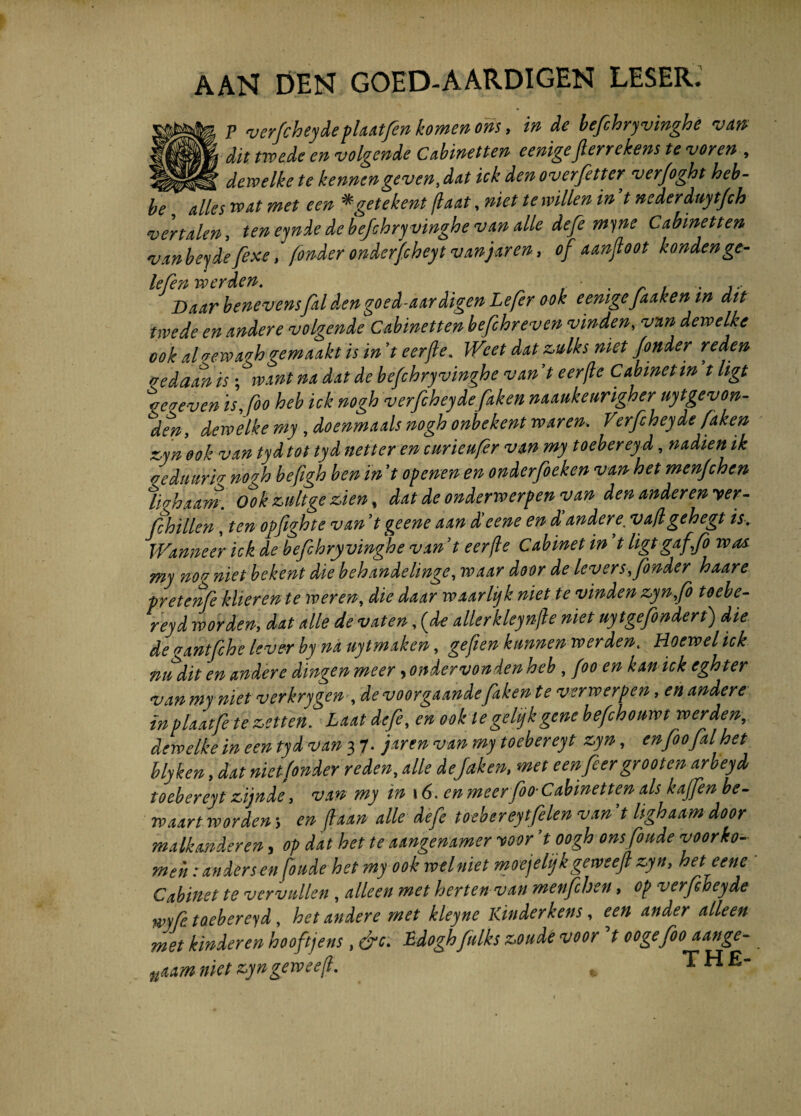 AAN DEN GOED-AARDIGEN LESER.
OP verscheyde plaatsen komen ons, in de beschryvinghe van
dit twede en volgende Cabinetten eenige sterrekens te voren,
dewelke te kennen geven, dat ick den overfetter versoght heb-
be, alles wat met een *getekent staat, niet te willen in 't nederduytsch
vertalen, ten eynde de beschryvinghe van alle dese myne Cabinetten
van beyde sexe, sonder onderscheyt van jaren, of aanstoot konden ge-
lesen werden.
Daar benevens sal den goed-aardigen Leser ook eenige saaken in dit
twede en andere volgende Cabinetten beschreven vinden, van dewelke
ook al gewagh gemaakt is in 't eerste. Weet dat zulks niet sonder reden
gedaan is; want na dat de beschryvinghe van 't eerste Cabinet in 't ligt
gegeven is, soo heb ick nogh verscheyde saken naaukeurigher uytgevon-
den, dewelke my, doenmaals nogh onbekent waren. Verscheyde saken
zyn ook van tyd tot tyd netter en curieuser van my toebereyd, nadien ik
geduurig nogh besigh ben in 't openen en ondersoeken van het menschen
lighaam. Ook zult ge zien, dat de onderwerpen van den anderen ver-
schillen, ten opsighte van 't geene aan d'eene en d'andere vast gehegt is.
Wanneer ick de beschryvinghe van 't eerste Cabinet in 't ligt gaf, so was
my nog niet bekent die behandelinge, waar door de levers, sonder haare
pretense klieren te weren, die daar waarlyk niet te vinden zyn, so toebe-
reyd worden, dat alle de vaten, (de allerkleynste niet uytgesondert) die
de gantsche lever by na uytmaken, gesien kunnen werden. Hoewel ick
nu dit en andere dingen meer, ondervonden heb, soo en kan ick eghter
van my niet verkrygen, de voorgaande saken te verwerpen, en andere
in plaatse te zetten. Laat dese, en ook te gelyk gene beschouwt werden,
dewelke in een tyd van 37. jaren van my toebereyt zyn, en soo sal het
blyken, dat niet sonder reden, alle de saken, met een seer grooten arbeyd
toebereyt zijnde, van my in 16. en meer soo Cabinetten als kassen be-
waart worden; en staan alle dese toebereytselen van 't lighaam door
malkanderen, op dat het te aangenamer voor 't oogh ons soude voorko-
men: anders en soude het my ook wel niet moejelyk geweest zyn, het eene
Cabinet te vervullen, alleen met herten van menschen, op verscheyde
wyse toebereyd, het andere met kleyne Kinderkens, een ander alleen
met kinderen hooftjens, &c. Edogh sulks zoude voor 't ooge soo aange-
naam niet zyn geweest.
THE-